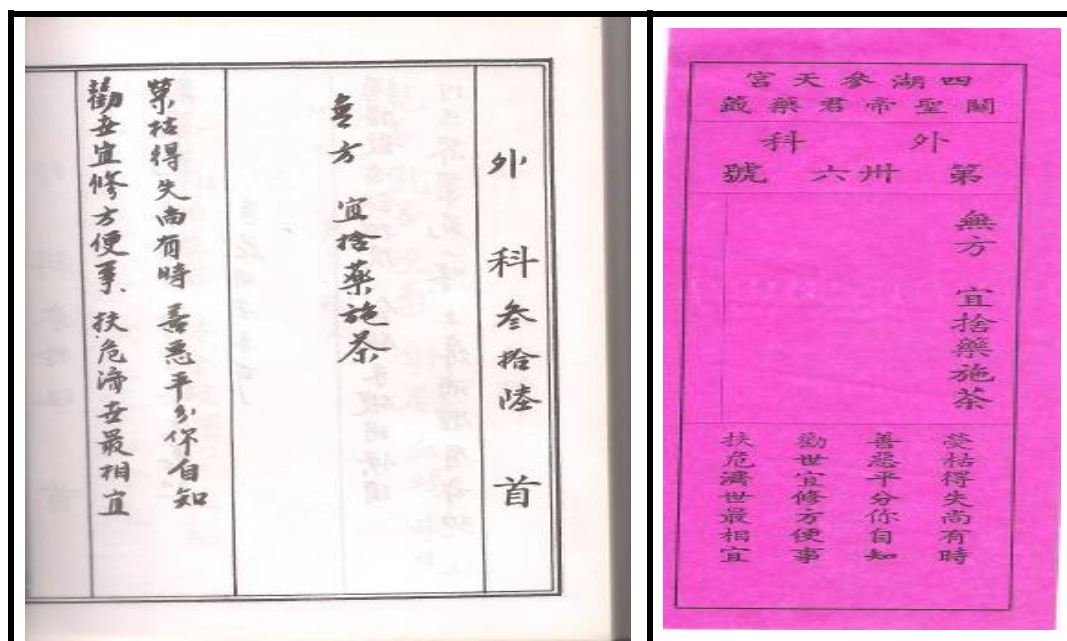 外科叁拾陸首
無方 宜捨藥施茶
榮枯得失尚有時 善惡平分你自知
勸世宜修方便事 扶危濟世最相宜
四湖參天宮
關聖帝君藥籤
外科
第卅六號
無方 宜捨藥施茶
榮枯得失尚有時
善惡平分你自知
勸世宜修方便事
扶危濟世最相宜